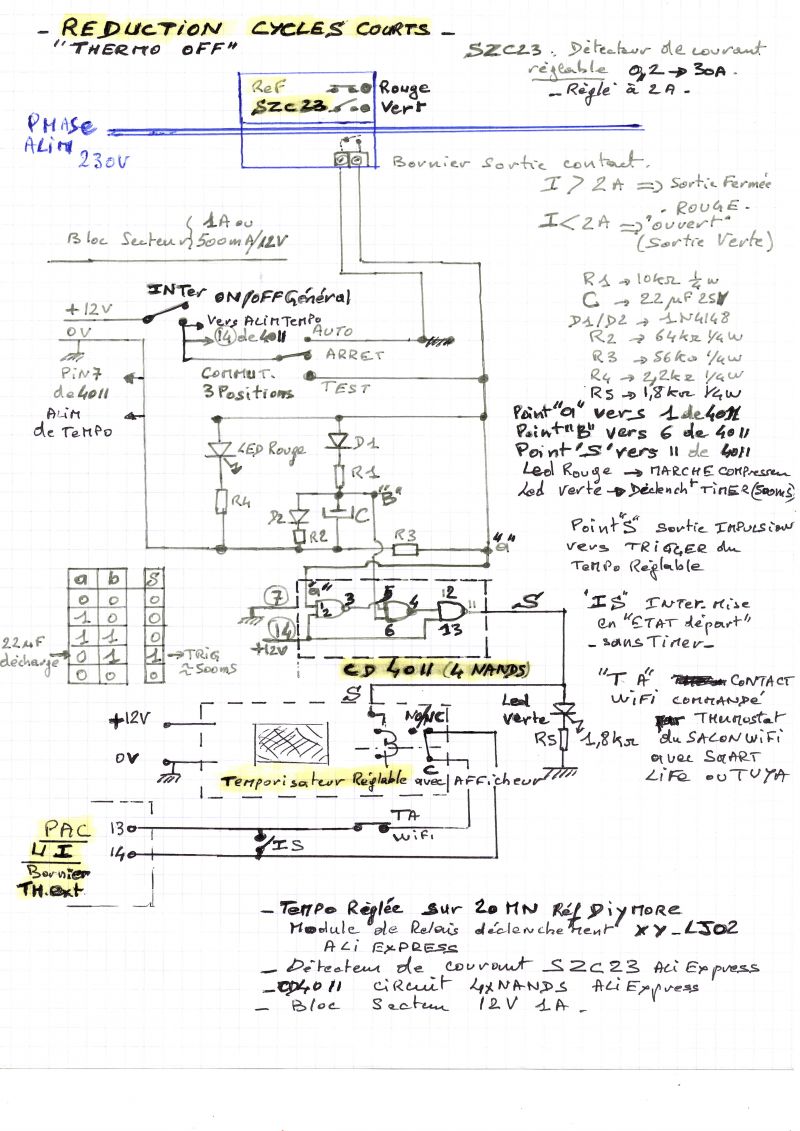 - REDUCTION CYCLES COURTS -
"THERMO OFF"
SZC23 : Détecteur de courant
réglable 0,2 → 30A.
- Règlé à 2A -
Ref
Rouge
SZC23
Vert
PHASE
ALIM
230V
Bornier sortie contact.
I > 2A => Sortie Fermée
- ROUGE -
I < 2A => "ouvert"
(Sortie Verte)
Bloc Secteur { 1A ou
500mA/12V
R1 → 10kΩ ¼w
C → 22µF 25V
D1/D2 → 1N4148
R2 → 64kΩ 1/4w
R3 → 56kΩ 1/4w
R4 → 2,2kΩ 1/4w
R5 → 1,8kΩ 1/4w
Point "a" vers 1 de 4011
Point "B" vers 6 de 4011
Point "S" vers 11 de 4011
Led Rouge → MARCHE COMPresseur
Led verte → Déclencht TIMER (500ms)
INTer ON/OFF Général
+12V
0V
Vers ALIM TEMPO
14 de 4011
AUTO
ARRET
COMMUT.
3 Positions
TEST
Pin 7
de 4011
ALIM
de Tempo
LED Rouge
D1
R1
R4
"B"
D2
C
R2
R3
"a"
Point "S" sortie IMPULSION
vers TRIGGER du
Tempo Réglable
a b S
0 0 0
1 0 0
1 1 0
0 1 1
0 0 0
22µF
décharge
TRIG
~500ms
7
"a"
1
2
3
5
6
4
12
13
11
14
+12V
S
CD 4011 (4 NANDS)
"IS" INTer. Mise
en "ETAT départ"
- sans Timer -
"TA" CONTACT
WiFi COMMANDÉ
par THermostat
du SALON WiFi
avec SMART
LIFE ou TUYA
S
+12V
0V
NO
NC
C
Led
verte
R5
1,8kΩ
Temporisateur Réglable avec AFFicheur
PAC
UI
Bornier
TH.ext
13
14
IS
TA
WiFi
- TEMPO Règlée sur 20 MN Réf DiyMORE
Module de Relais déclenchement XY-LJ02
ALi EXPRESS
- Détecteur de courant SZC23 ALi Express
- CD4011 circuit 4xNANDS ALi Express
- Bloc Secteur 12V 1A.